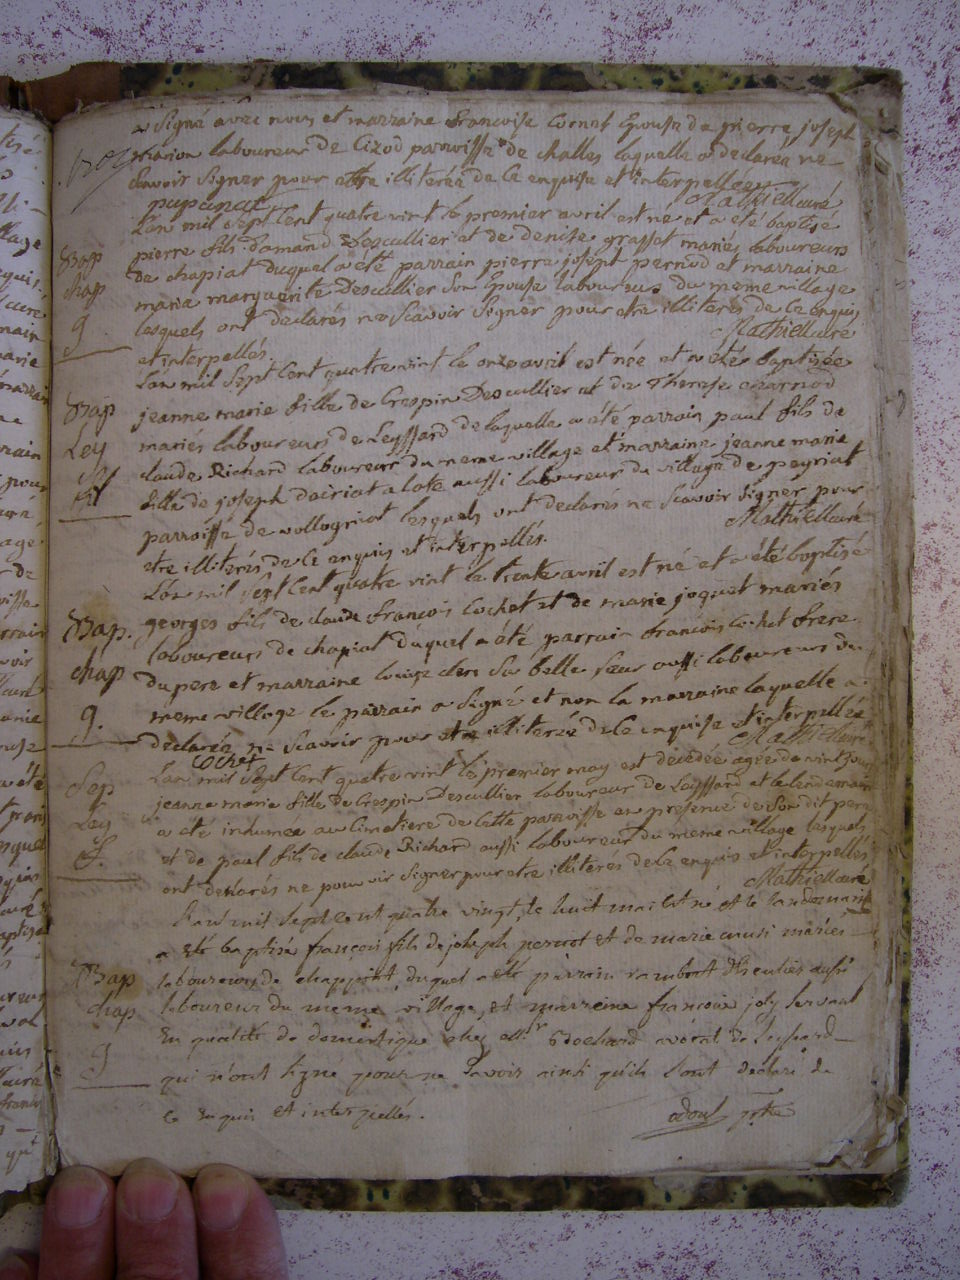 a Signé avec nous et marraine francoise Cornet Epouse de pierre joseph
marion laboureur de Cizod parroisse de challes laquelle a declaréa ne
Scavoir Signer pour etre illiterée de ce enquise et interpellée Mathieu curé
pupunat
L'an mil Sept Cent quatre vint le premier avril est né et a été baptisé
Bap pierre fils d'amand Descullier et de Denise grassot mariés laboureurs
chap de chapiat duquel a été parrain pierre joseph pernod et marraine
marie marguerite Descullier Son Epouse laboureurs du meme village
g. lesquels ont declarés ne Scavoir Signer pour etre illiterés de ce enquis
et interpellés. Mathieu curé
L'an mil Sept Cent quatre vint le onze avril est née et a été baptizée
Bap jeanne marie fille de Crespin Descullier et de Therese charnod
Ley mariés laboureurs de Leyssard de laquelle a été parrain paul fils de
claude Richard laboureur du meme village et marraine jeanne marie
fille de joseph aussi laboureur du village de peyriat
parroisse de vollognat lesquels ont declarés ne Scavoir Signer pour
etre illiterés de ce enquis et interpellés. Mathieu curé
L'an mil Sept Cent quatre vint le trente avril est né et a été baptisé
Bap. georges fils de claude francois Cochet et de marie joquet mariés
chap laboureurs de chapiat duquel a été parrain francois Cochet frere
du pere et marraine Sa belle Seur aussi laboureurs du
g. meme village le parrain a Signé et non la marraine laquelle a
declaréa ne Scavoir pour etre illiterée de ce enquise et interpellée
Cochet Mathieu curé
Sep L'an mil Sept Cent quatre vint le premier may est décedée agée de vint jours
Ley jeanne marie fille de Crespin Descullier laboureur de Leyssard et le lendemain
f. a été inhumée au Cimetiere de Cette parroisse en presence de Son dit pere
et de paul fils de claude Richard aussi laboureur du meme village lesquels
ont declarés ne pouvoir Signer pour etre illiterés de ce enquis et interpellés
Mathieu curé
L'an mil Sept Cent quatre vingt, le huit mai est né et le landemain
a eté baptisés françois fils de joseph pernot et de marie mariés
Bap laboureurs de chappiat, duquel a eté parrain rambert aussi
chap laboureur du meme village, et marreine francoise joly Servant
En qualité de domestique chez Mr Brochard avocat de leyssard
g qui n'ont signé pour ne Savoir ainsi qu'ils l'ont declaré de
Ce Enquis et interpellés. adoul ptre